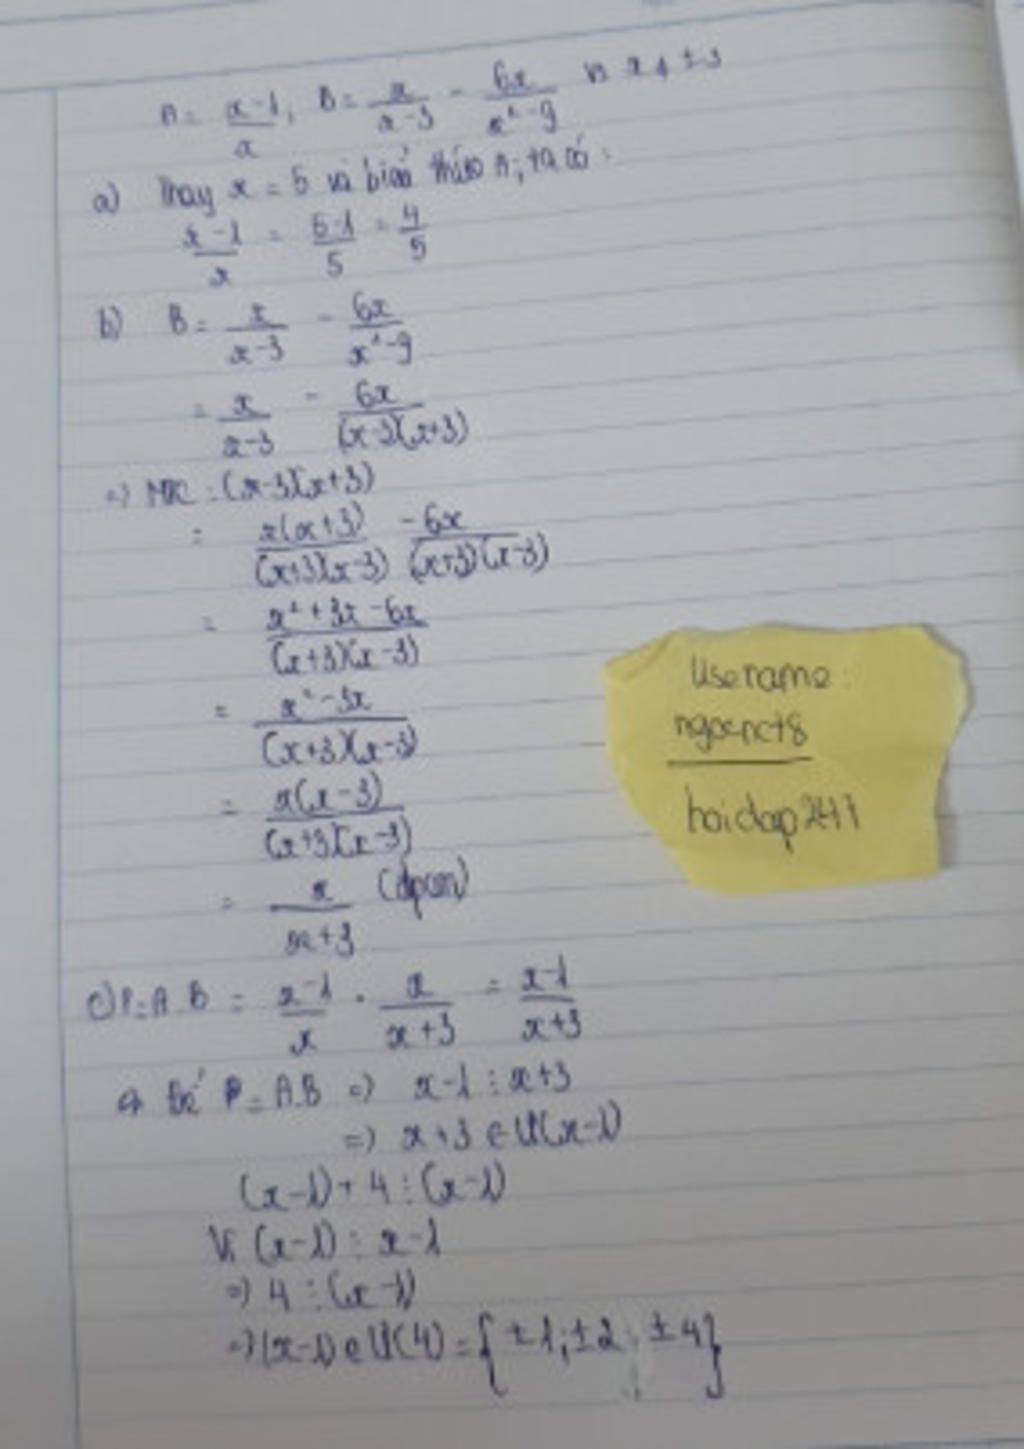 A = (x-1)/x ; B = x/(x-3) - 6x/(x²-9) x ≠ ±3
a) Thay x = 5 và biểu thức A, ta có:
(x-1)/x = (5-1)/5 = 4/5
b) B = x/(x-3) - 6x/(x²-9)
= x/(x-3) - 6x/((x-3)(x+3))
=> MTC: (x-3)(x+3)
= x(x+3)/((x+3)(x-3)) -6x/((x+3)(x-3))
= (x²+3x-6x)/((x+3)(x-3))
= (x²-3x)/((x+3)(x-3))
= x(x-3)/((x+3)(x-3))
= x/(x+3) (đpcm)
c) P = A.B = (x-1)/x . x/(x+3) = (x-1)/(x+3)
để P = A.B => x-1 ⋮ x+3
=> x+3 ∈ Ư(x-1)
(x-1)+4 ⋮ (x-1)
Vì (x-1) ⋮ x-1
=> 4 ⋮ (x-1)
=> (x-1) ∈ Ư(4) = {±1; ±2; ±4}
Username:
hoidap247